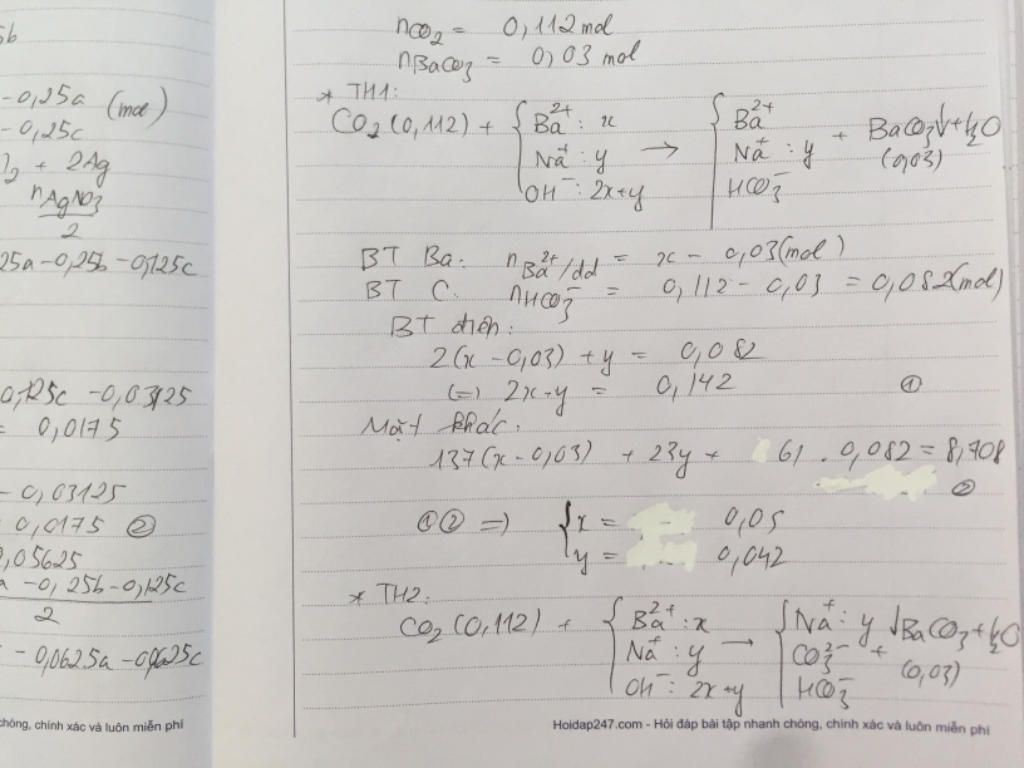 5b
- 0,25a (mol)
- 0,25c
+ 2Ag
nAgNO3
2
25a - 0,25b - 0,125c
0,125c - 0,03125
= 0,0175
- 0,03125
0,0175 ②
0,05625
a - 0,25b - 0,125c
2
- 0,0625a - 0,0625c
chóng, chính xác và luôn miễn phí
nCO2 = 0,112 mol
nBaCO3 = 0,03 mol
* TH1:
CO2 (0,112) + { Ba2+ : x → { Ba2+ + BaCO3↓ + H2O
Na+ : y Na+ : y (0,03)
OH- : 2x+y HCO3-
BT Ba: nBa2+/dd = x - 0,03 (mol)
BT C. nHCO3- = 0,112 - 0,03 = 0,082 (mol)
BT điện:
2(x - 0,03) + y = 0,082
(=) 2x+y = 0,142 ①
Mặt khác.
137(x - 0,03) + 23y + 61 . 0,082 = 8,708
②
①② =) { x = 0,05
y = 0,042
* TH2:
CO2 (0,112) + { Ba2+ : x → { Na+ : y + ↓BaCO3 + H2O
Na+ : y CO32- (0,03)
OH- : 2x+y HCO3-
Hoidap247.com - Hỏi đáp bài tập nhanh chóng, chính xác và luôn miễn phí